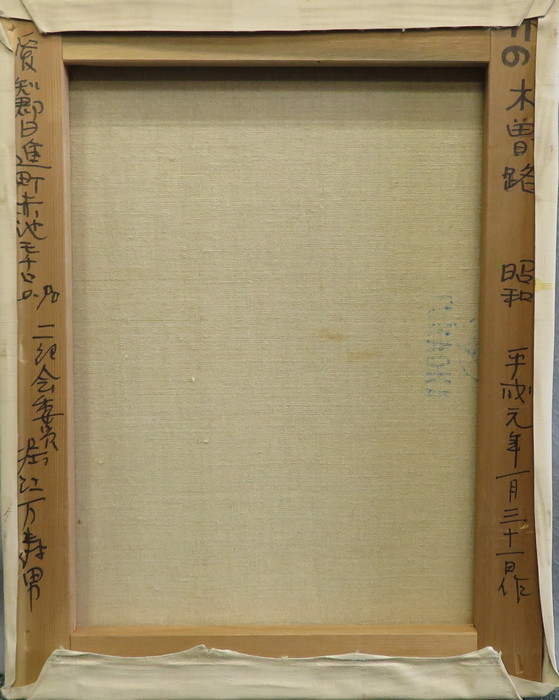 の 木曽路 昭和 平成元年一月三十一日作
愛知郡日進町赤池
二紀会委員 堀江万寿男